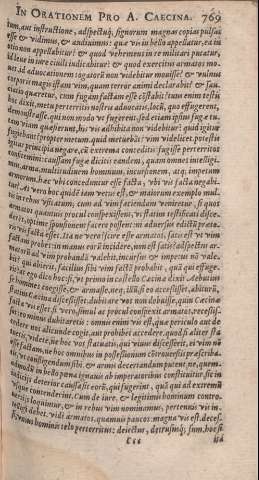 IN ORATIONEM PRO A. CAECINA. 769
tum, aut instructione, adspectuq́; signorum magnas copias pulsas
esse & vidimus, & audiuimus: quae vis in bello appellatur, ea in
otio non appellabitur? & quod vehemens in re militari putatur,
id leue in iure ciuili iudicabitur? & quod exercitus armatos mo-
uet, id aduocationem togatorū non videbitur mouisse? & vulnus
corporis magis istam vim, quam terror animi declarabit? & sau-
ciatio quaeretur, cum fugam factam esse constabit? tuus enim testis
hoc dixit, metu perterritis nostris aduocatis, locū, quo effugerent,
demonstrasse. qui non modo vt fugerent, sed etiam ipsius fugae tu-
tam viam quaesierunt, his vis adhibita non videbitur? quid igitur
fugiebant? propter metum. quid metuebāt? vim videlicet. potestis
igitur principia negare, cū extrema conceditis? fugisse perterritos
confitemini: caussam fugae dicitis eandem, quam omnes intelligi-
mus, arma, multitudinem hominum, incursionem, atq; impetum
armatorum. haec vbi conceduntur esse facta, vbi vis facta negabi-
tur? At vero hoc quidē iam vetus est, & maiorum exemplo mul-
tis in rebus vsitatum; cum ad vim faciendam veniretur, si quos
armatos quamuis procul conspexissent, vt statim testificati disce-
derent, optime sponsionem facere possent: ni aduersus edictū praeto-
ris vis facta esset. Ita ne vero? scire esse armatos, satis est vt vim
factam probes: in manus eorū incidere, non est satis? adspectus ar-
matorū ad vim probandā valebit, incursus & impetus nō vale-
bit? qui abierit, facilius sibi vim factā probabit, quā qui effuge-
rit? at ego dico hoc: si, vt primo in castello Caecinae dixit Aebutius
se homines coegisse, & armasse, neq; illū, si eo accessisset, abiturū,
statim Caecina discessisset: dubitare vos non debuisse, quin Caecinae
facta vis esset. si vero, simul ac procul conspexit armatos, recessis-
set: eo minus dubitaretis: omnis enim vis est, quae periculo aut de-
cedere nos alicunde cogit, aut prohibet accedere. quod si aliter sta-
tuetis, videte, ne hoc vos statuatis, qui viuus discesserit, ei vim nō
esse factam, ne hoc omnibus in possessionum cōtrouersiis praescriba-
tis, vt confligendum sibi, & armis decertandum putent, ne, quem-
admodū in bello poena ignauis ab imperatoribus constituitur, sic in
iudiciis deterior caussa sit eorū, qui fugerint, quā qui ad extremū
vsque contenderint. Cum de iure, & legitimis hominum contro-
uersiis loquimur, & in rebus vim nominamus, pertenuis vis in-
telligi debet. vidi armatos, quamuis paucos: magna vis est. deces-
si vnius hominis telo perterritus: deiectus, detrususq́; sum. hoc si
Ccc ita